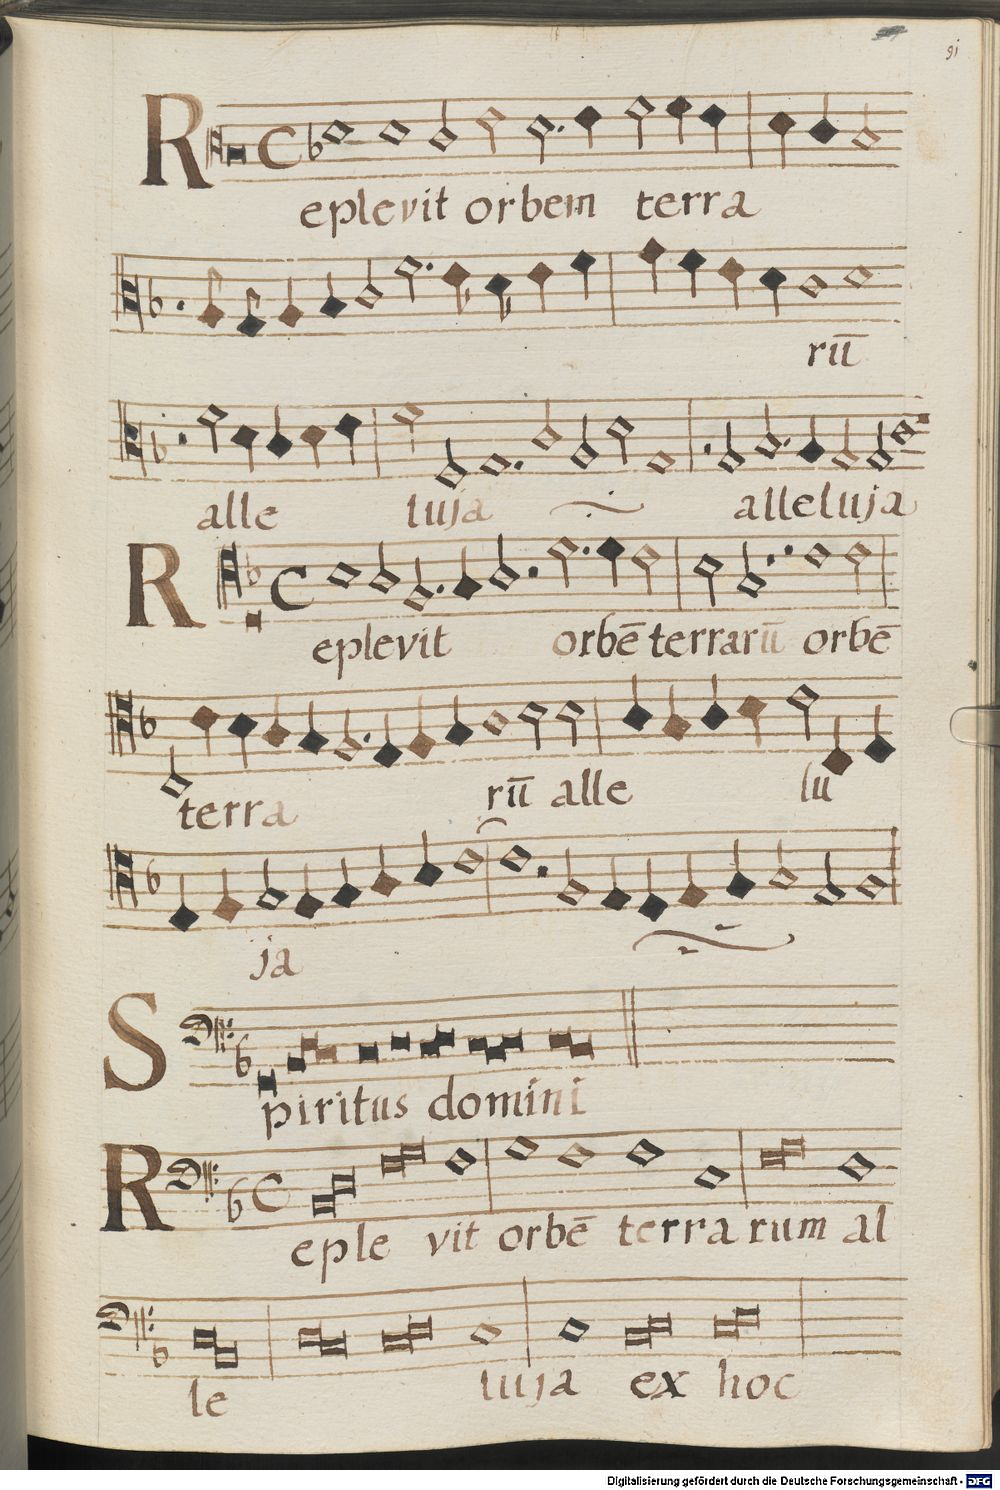 91
Replevit orbem terra
rū
alle luja alleluja
Replevit orbē terrarū orbē
terra rū alle lu
ja
Spiritus domini
Replevit orbē terra rum al
le luja ex hoc
Digitalisierung gefördert durch die Deutsche Forschungsgemeinschaft - DFG